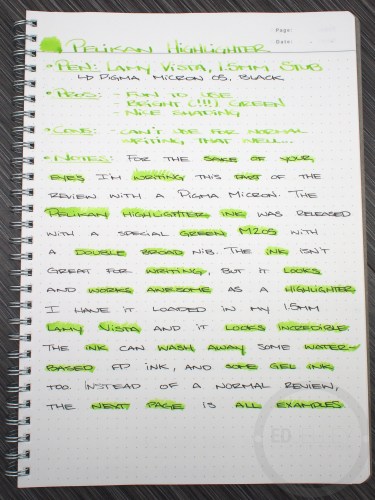 Page:
Date:
PELIKAN HIGHLIGHTER
• PEN: LAMY VISTA, 1.5MM STUB
↳ PIGMA MICRON 05, BLACK
• PROS: - FUN TO USE
- BRIGHT (!!!!) GREEN
- NICE SHADING
• CONS: - CAN'T USE FOR NORMAL
WRITING THAT WELL...
• NOTES: FOR THE SAKE OF YOUR
EYES I'M WRITING THIS PART OF THE
REVIEW WITH A PIGMA MICRON. THE
PELIKAN HIGHLIGHTER INK WAS RELEASED
WITH A SPECIAL GREEN M205 WITH
A DOUBLE BROAD NIB. THE INK ISN'T
GREAT FOR WRITING, BUT IT LOOKS
AND WORKS AWESOME AS A HIGHLIGHTER
I HAVE IT LOADED IN MY 1.5MM
LAMY VISTA AND IT LOOKS INCREDIBLE
THE INK CAN WASH AWAY SOME WATER-
BASED FP INK, AND SOME GEL INK
TOO. INSTEAD OF A NORMAL REVIEW,
THE NEXT PAGE IS ALL EXAMPLES
ED